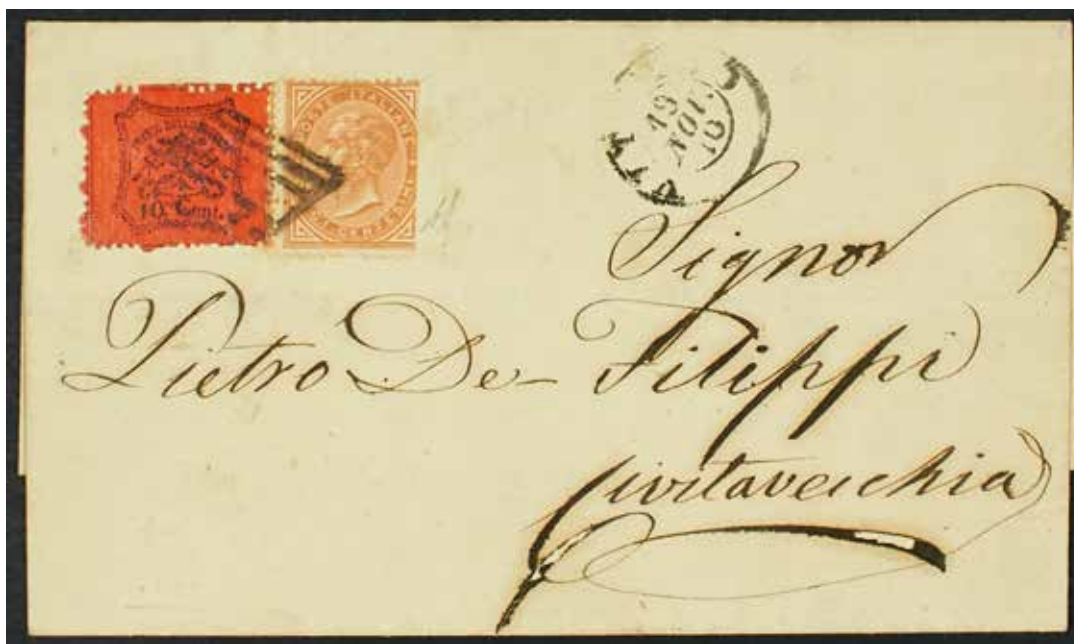 10 Cent.
POSTE ITALIANE
VIT
19 NOV. 70
Signor
Pietro De-Filippi
Civitavecchia